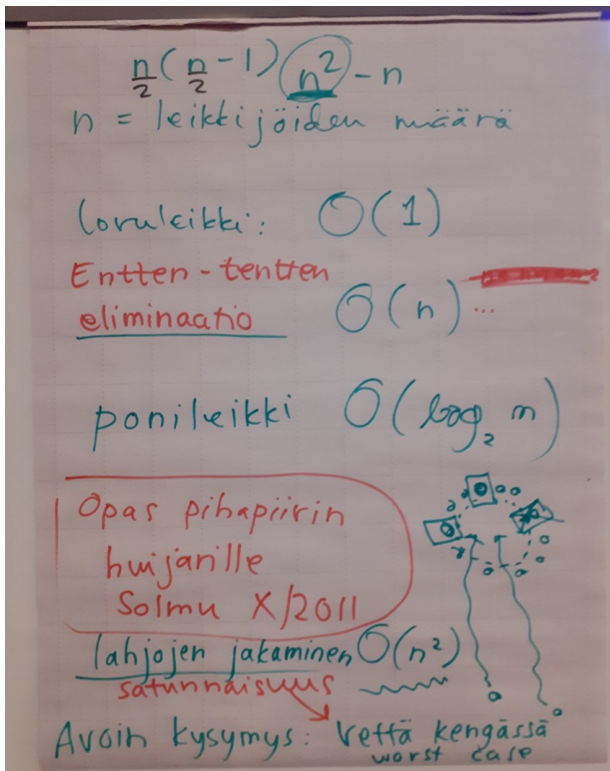 n/2 (n/2 - 1) n² - n
n = leikkijöiden määrä
Loruleikki: O(1)
Entten-tentten
eliminaatio O(n) ...
ponileikki O(log₂ n)
Opas pihapiirin
huijarille
Solmu X/2011
lahjojen jakaminen O(n²)
satunnaisuus
Avoin kysymys: Vettä kengässä
worst case